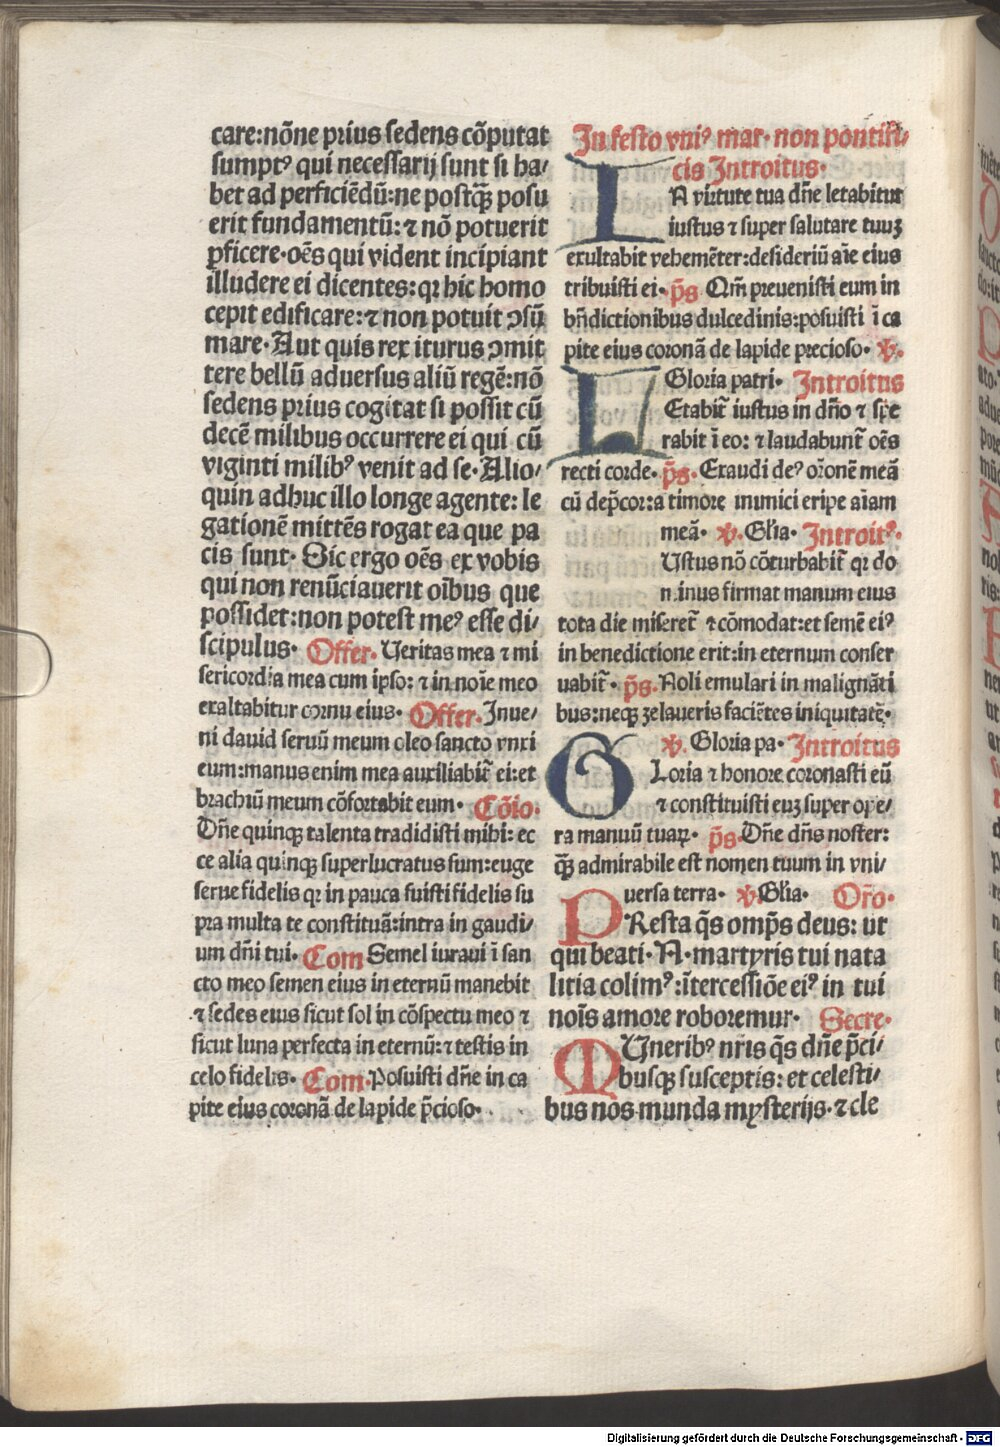 care:nõne prius sedens cõputat
sumptꝰ qui necessarij sunt si ha/
bet ad perficiẽdũ:ne postꝗ̃ posu
erit fundamentũ: ⁊ nõ potuerit
ꝑficere·oẽs qui vident incipiant
illudere ei dicentes: qꝛ hic homo
cepit edificare: ⁊ non potuit ↄsũ
mare· Aut quis rex iturus ↄmit
tere bellũ aduersus aliũ regẽ:nõ
sedens prius cogitat si possit cũ
decẽ milibus occurrere ei qui cũ
viginti milibꝰ venit ad se· Alio/
quin adhuc illo longe agente: le
gationẽ mittẽs rogat ea que pa
cis sunt· Sic ergo oẽs ex vobis
qui non renũciauerit oĩbus que
possidet:non potest meꝰ esse di/
scipulus· Offer· Ueritas mea ⁊ mi
sericordia mea cum ipso: ⁊ in noĩe meo
exaltabitur cornu eius· Offer· Inue/
ni dauid seruũ meum oleo sancto vnxi
eum:manus enim mea auxiliabit̃ ei:et
brachiũ meum cõfortabit eum· Cõio·
Dñe quinqꝫ talenta tradidisti mihi: ec
ce alia quinqꝫ superlucratus sum:euge
serue fidelis qꝛ in pauca fuisti fidelis su
pra multa te constituã:intra in gaudi/
um dñi tui· Com Semel iuraui ĩ san
cto meo semen eius in eternũ manebit
⁊ sedes eius sicut sol in cõspectu meo ⁊
sicut luna perfecta in eternũ: ⁊ testis in
celo fidelis· Com· Posuisti dñe in ca
pite eius coronã de lapide p̃cioso·
In festo vniꝰ mar· non pontifi/
cis Introitus·
IN virtute tua dñe letabitur
iustus ⁊ super salutare tuuꝫ
exultabit vehemẽter:desideriũ aĩe eius
tribuisti ei· p̃s Qm̃ preuenisti eum in
bñdictionibus dulcedinis:posuisti ĩ ca
pite eius coronã de lapide precioso· ℣·
Gloria patri· Introitus
LEtabit̃ iustus in dño ⁊ spe
rabit ĩ eo: ⁊ laudabunt̃ oẽs
recti corde· p̃s· Exaudi deꝰ oꝛonẽ meã
cũ dep̃cor:a timore inimici eripe aĩam
meã· ℣· Gl̃ia· Introitꝰ·
Ustus nõ cõturbabit̃ qꝛ do
minus firmat manum eius
tota die miseret̃ ⁊ cõmodat:et semẽ eiꝰ
in benedictione erit:in eternum conser
uabit̃· p̃s· Noli emulari in malignãti
bus:neqꝫ zelaueris faciẽtes iniquitatẽ·
℣· Gloria pa· Introitus
GLoria ⁊ honore coronasti eũ
⁊ constituisti euꝫ super ope/
ra manuũ tuaꝝ· p̃s· Dñe dñs noster:
ꝗ̃ admirabile est nomen tuum in vni/
uersa terra· ℣ Gl̃ia· Or̃o·
PResta q̃s omp̃s deus: ut
qui beati· N· martyris tui nata
litia colimꝰ:ĩtercessiõe eiꝰ in tui
noĩs amore roboremur· Secre·
MUneribꝰ nr̃is q̃s dñe p̃ci/
busqꝫ susceptis: et celesti/
bus nos munda mysterijs· ⁊ cle
Digitalisierung gefördert durch die Deutsche Forschungsgemeinschaft - DFG